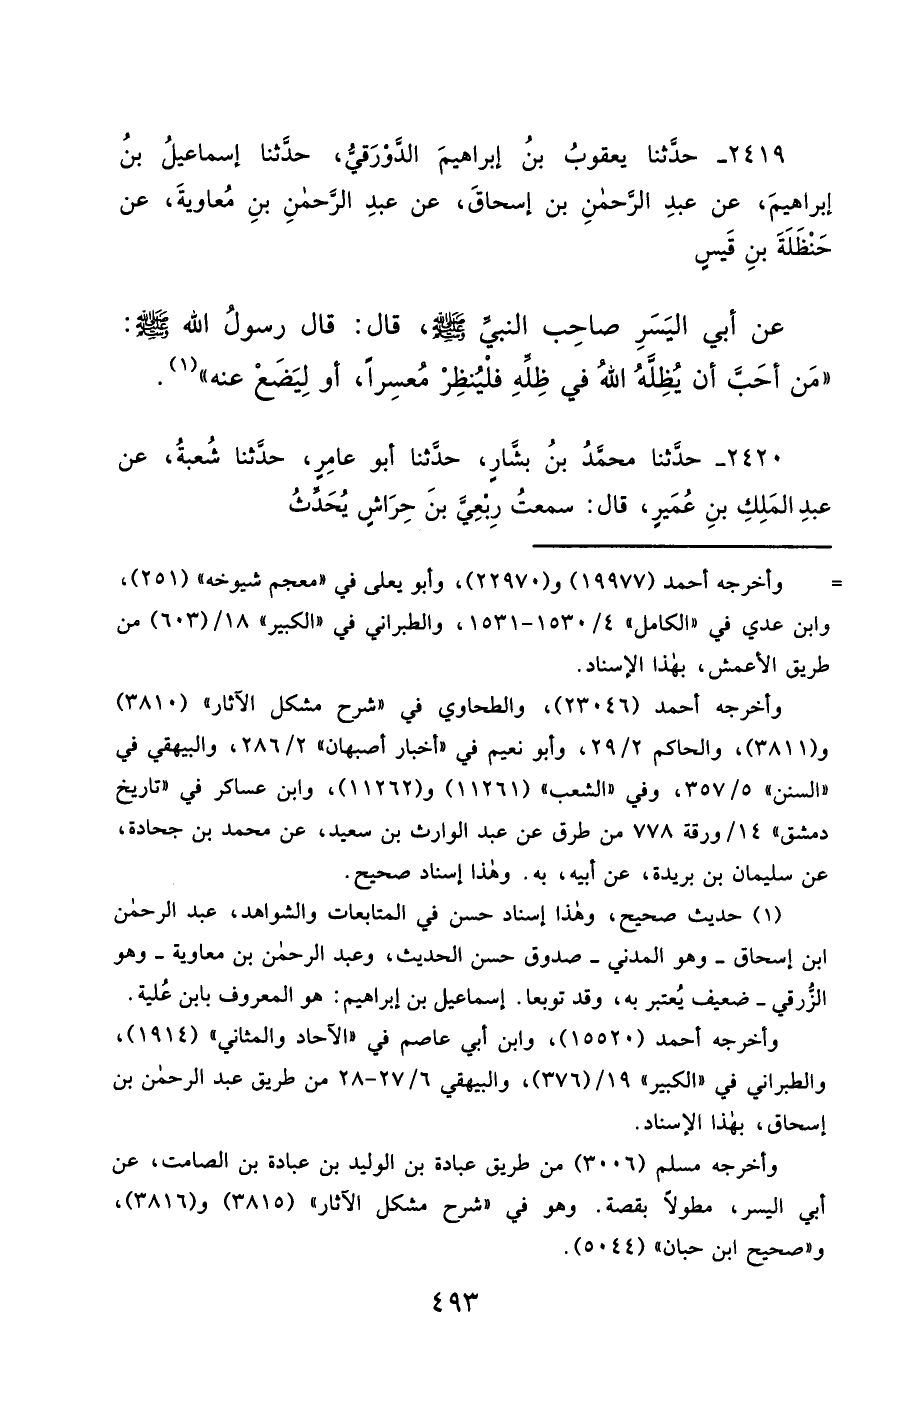 ٢٤١٩ـ حدَّثنا يعقوبُ بنُ إبراهيمَ الدَّوْرَقيُّ، حدَّثنا إسماعيلُ بنُ
إبراهيمَ، عن عبدِ الرَّحمٰنِ بن إسحاقَ، عن عبدِ الرَّحمٰنِ بنِ مُعاويةَ، عن
حَنْظَلَةَ بنِ قَيسٍ
عن أبي اليَسَرِ صاحِب النبيِّ ﷺ، قال: قال رسولُ الله ﷺ:
«مَن أحَبَّ أن يُظِلَّهُ اللهُ في ظِلِّهِ فلْيُنظِرْ مُعسِراً، أو لِيَضَعْ عنه»(١).
٢٤٢٠ـ حدَّثنا محمَّدُ بنُ بشَّارٍ، حدَّثنا أبو عامِرٍ، حدَّثنا شُعبةُ، عن
عبدِ المَلِكِ بنِ عُمَيرٍ، قال: سمعتُ رِبْعِيَّ بنَ حِرَاشٍ يُحَدِّثُ
= وأخرجه أحمد (١٩٩٧٧) و(٢٢٩٧٠)، وأبو يعلى في «معجم شيوخه» (٢٥١)،
وابن عدي في «الكامل» ٤/ ١٥٣٠-١٥٣١، والطبراني في «الكبير» ١٨/ (٦٠٣) من
طريق الأعمش، بهٰذا الإسناد.
وأخرجه أحمد (٢٣٠٤٦)، والطحاوي في «شرح مشكل الآثار» (٣٨١٠)
و(٣٨١١)، والحاكم ٢/ ٢٩، وأبو نعيم في «أخبار أصبهان» ٢/ ٢٨٦، والبيهقي في
«السنن» ٥/ ٣٥٧، وفي «الشعب» (١١٢٦١) و(١١٢٦٢)، وابن عساكر في «تاريخ
دمشق» ١٤/ ورقة ٧٧٨ من طرق عن عبد الوارث بن سعيد، عن محمد بن جحادة،
عن سليمان بن بريدة، عن أبيه، به. وهٰذا إسناد صحيح.
(١) حديث صحيح، وهٰذا إسناد حسن في المتابعات والشواهد، عبد الرحمٰن
ابن إسحاق ـ وهو المدني ـ صدوق حسن الحديث، وعبد الرحمٰن بن معاوية ـ وهو
الزُّرقي ـ ضعيف يُعتبر به، وقد توبعا. إسماعيل بن إبراهيم: هو المعروف بابن عُلية.
وأخرجه أحمد (١٥٥٢٠)، وابن أبي عاصم في «الآحاد والمثاني» (١٩١٤)،
والطبراني في «الكبير» ١٩/ (٣٧٦)، والبيهقي ٦/ ٢٧-٢٨ من طريق عبد الرحمٰن بن
إسحاق، بهٰذا الإسناد.
وأخرجه مسلم (٣٠٠٦) من طريق عبادة بن الوليد بن عبادة بن الصامت، عن
أبي اليسر، مطولاً بقصة. وهو في «شرح مشكل الآثار» (٣٨١٥) و(٣٨١٦)،
و«صحيح ابن حبان» (٥٠٤٤).
٤٩٣